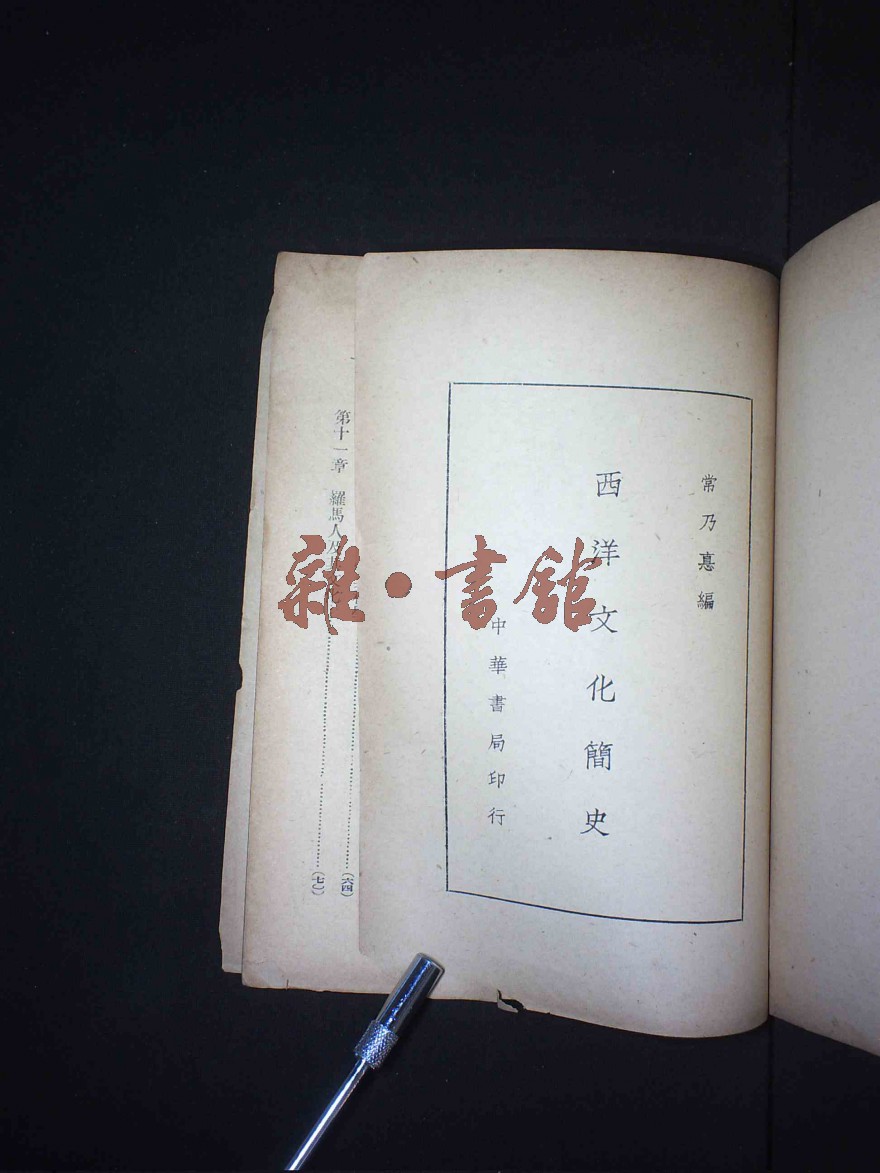 常乃惪編
西洋文化簡史
中華書局印行
(六四)
第十一章 羅馬人及其
(七〇)
雜·書館